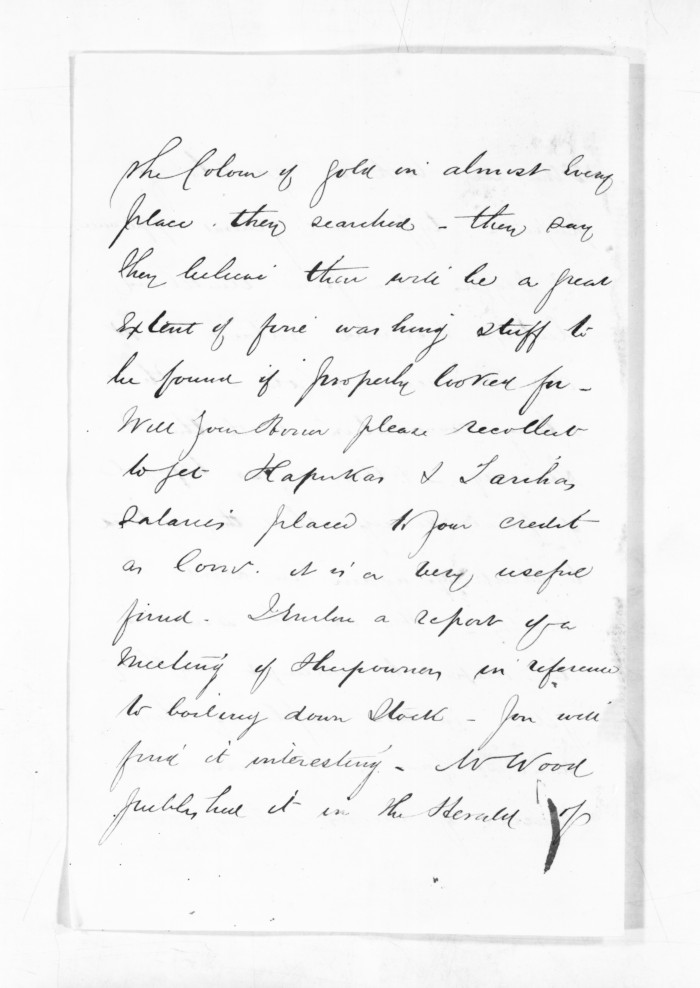 the Colour of gold in almost every
place. they searched - they say
they believe there will be a great
Extent of fine washing stuff to
be found if properly looked for -
Will Your Honor please recollect
to get Hapukas & Tarehas
Salaries placed to your credit
as it is a very useful
fund. I Enclose a report of a
Meeting of Sheepowners in reference
to boiling down Stock - you will
find it interesting - Mr Wood
published it in the Herald of